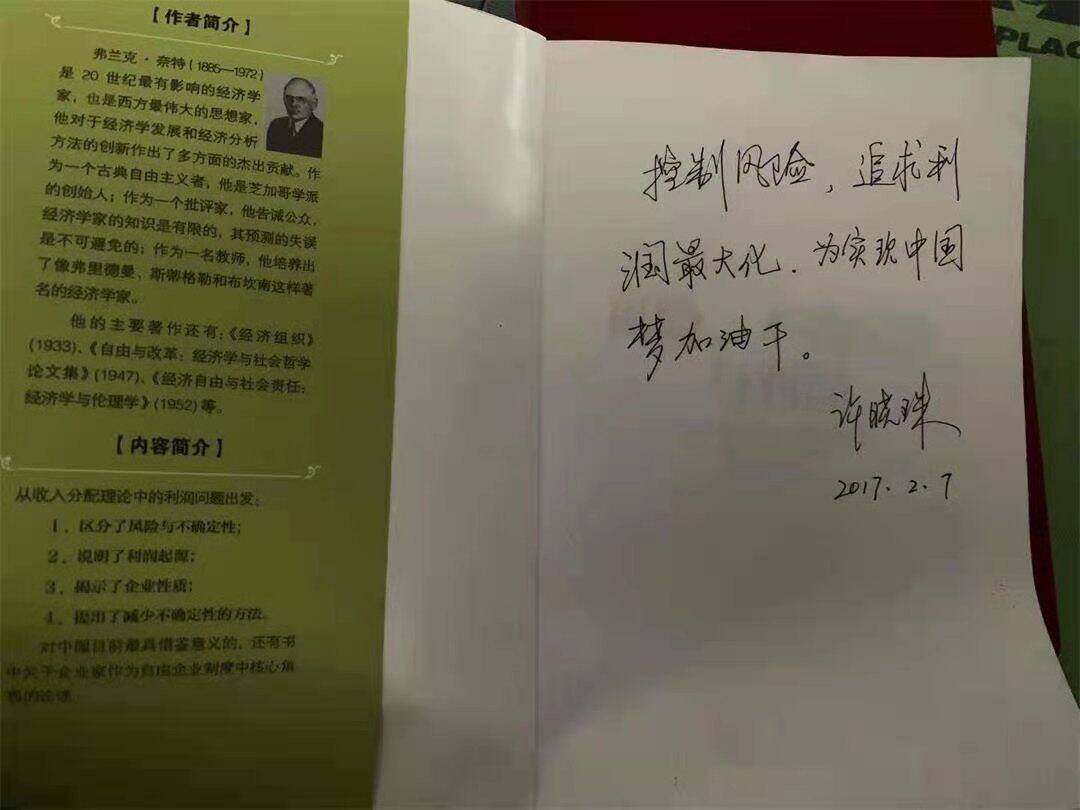 【作者简介】
弗兰克·奈特(1885—1972)
是 20 世纪最有影响的经济学
家，也是西方最伟大的思想家，
他对于经济学发展和经济分析
方法的创新作出了多方面的杰出贡献。作
为一个古典自由主义者，他是芝加哥学派
的创始人；作为一个批评家，他告诫公众，
经济学家的知识是有限的，其预测的失误
是不可避免的；作为一名教师，他培养出
了像弗里德曼、斯蒂格勒和布坎南这样著
名的经济学家。
他的主要著作还有：《经济组织》
(1933)、《自由与改革：经济学与社会哲学
论文集》(1947)、《经济自由与社会责任：
经济学与伦理学》(1952)等。
【内容简介】
从收入分配理论中的利润问题出发：
1、区分了风险与不确定性；
2、说明了利润起源；
3、揭示了企业性质；
4、提出了减少不确定性的方法。
对中国目前最具借鉴意义的，还有书
中关于企业家作为自由企业制度中核心角
色的论述
控制风险，追求利
润最大化．为实现中国
梦加油干。
许晓珠
2017.2.7
PLAC